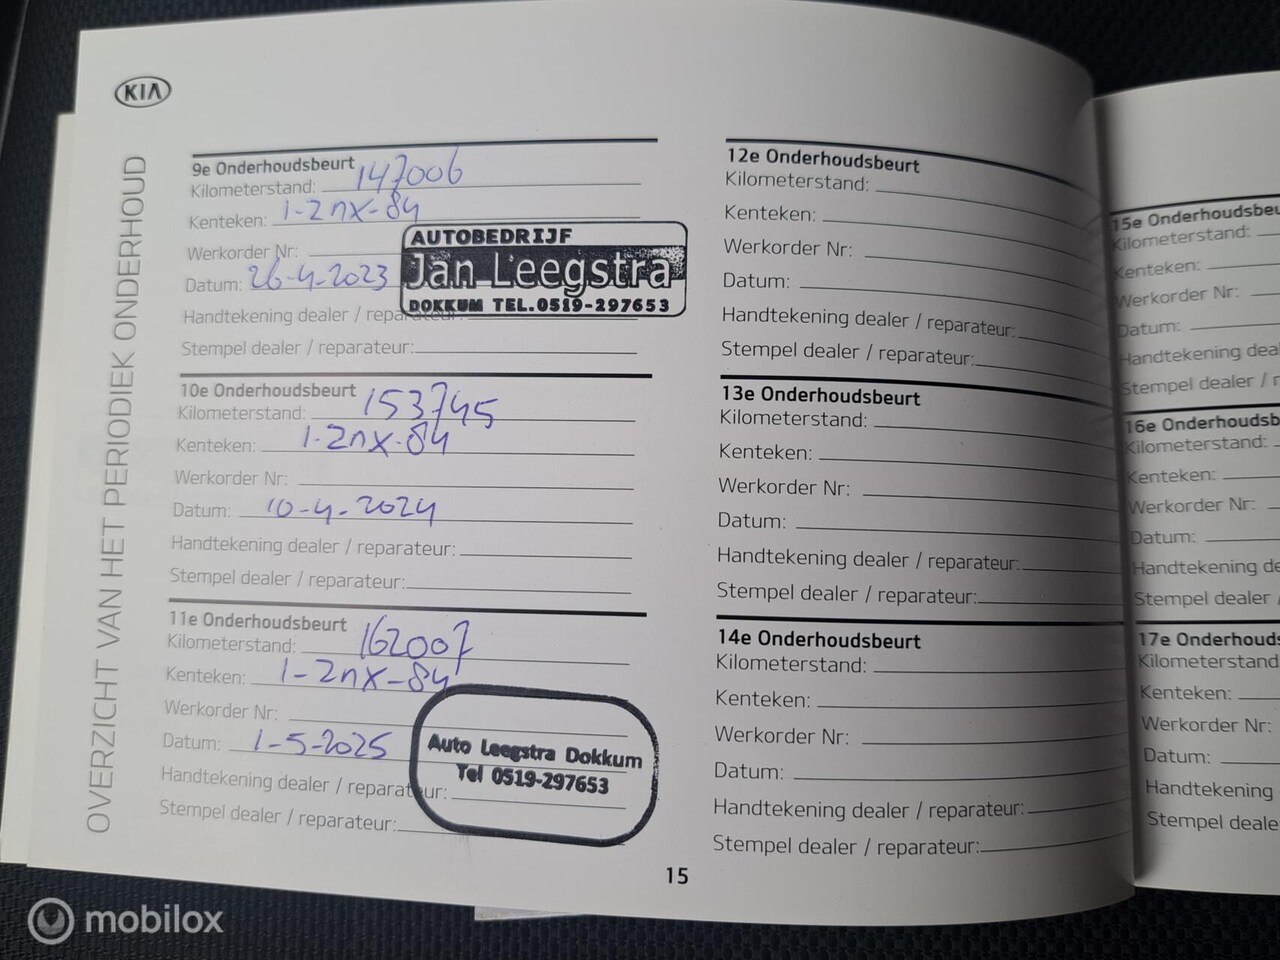 KIA
OVERZICHT VAN HET PERIODIEK ONDERHOUD
9e Onderhoudsbeurt
Kilometerstand: 147006
Kenteken: 1-2nx-84
Werkorder Nr:
Datum: 26-4-2023
Handtekening dealer / reparateur:
Stempel dealer / reparateur:
AUTOBEDRIJF
Jan Leegstra
DOKKUM TEL.0519-297653
10e Onderhoudsbeurt
Kilometerstand: 153745
Kenteken: 1-2nx-84
Werkorder Nr:
Datum: 10-4-2024
Handtekening dealer / reparateur:
Stempel dealer / reparateur:
11e Onderhoudsbeurt
Kilometerstand: 162007
Kenteken: 1-2nx-84
Werkorder Nr:
Datum: 1-5-2025
Handtekening dealer / reparateur:
Stempel dealer / reparateur:
Auto Leegstra Dokkum
Tel 0519-297653
12e Onderhoudsbeurt
Kilometerstand:
Kenteken:
Werkorder Nr:
Datum:
Handtekening dealer / reparateur:
Stempel dealer / reparateur:
13e Onderhoudsbeurt
Kilometerstand:
Kenteken:
Werkorder Nr:
Datum:
Handtekening dealer / reparateur:
Stempel dealer / reparateur:
14e Onderhoudsbeurt
Kilometerstand:
Kenteken:
Werkorder Nr:
Datum:
Handtekening dealer / reparateur:
Stempel dealer / reparateur:
15
15e Onderhoudsbeu
Kilometerstand:
Kenteken:
Werkorder Nr:
Datum:
Handtekening dea
Stempel dealer / r
16e Onderhoudsb
Kilometerstand:
Kenteken:
Werkorder Nr:
Datum:
Handtekening de
Stempel dealer /
17e Onderhouds
Kilometerstand
Kenteken:
Werkorder Nr:
Datum:
Handtekening
Stempel deale
mobilox